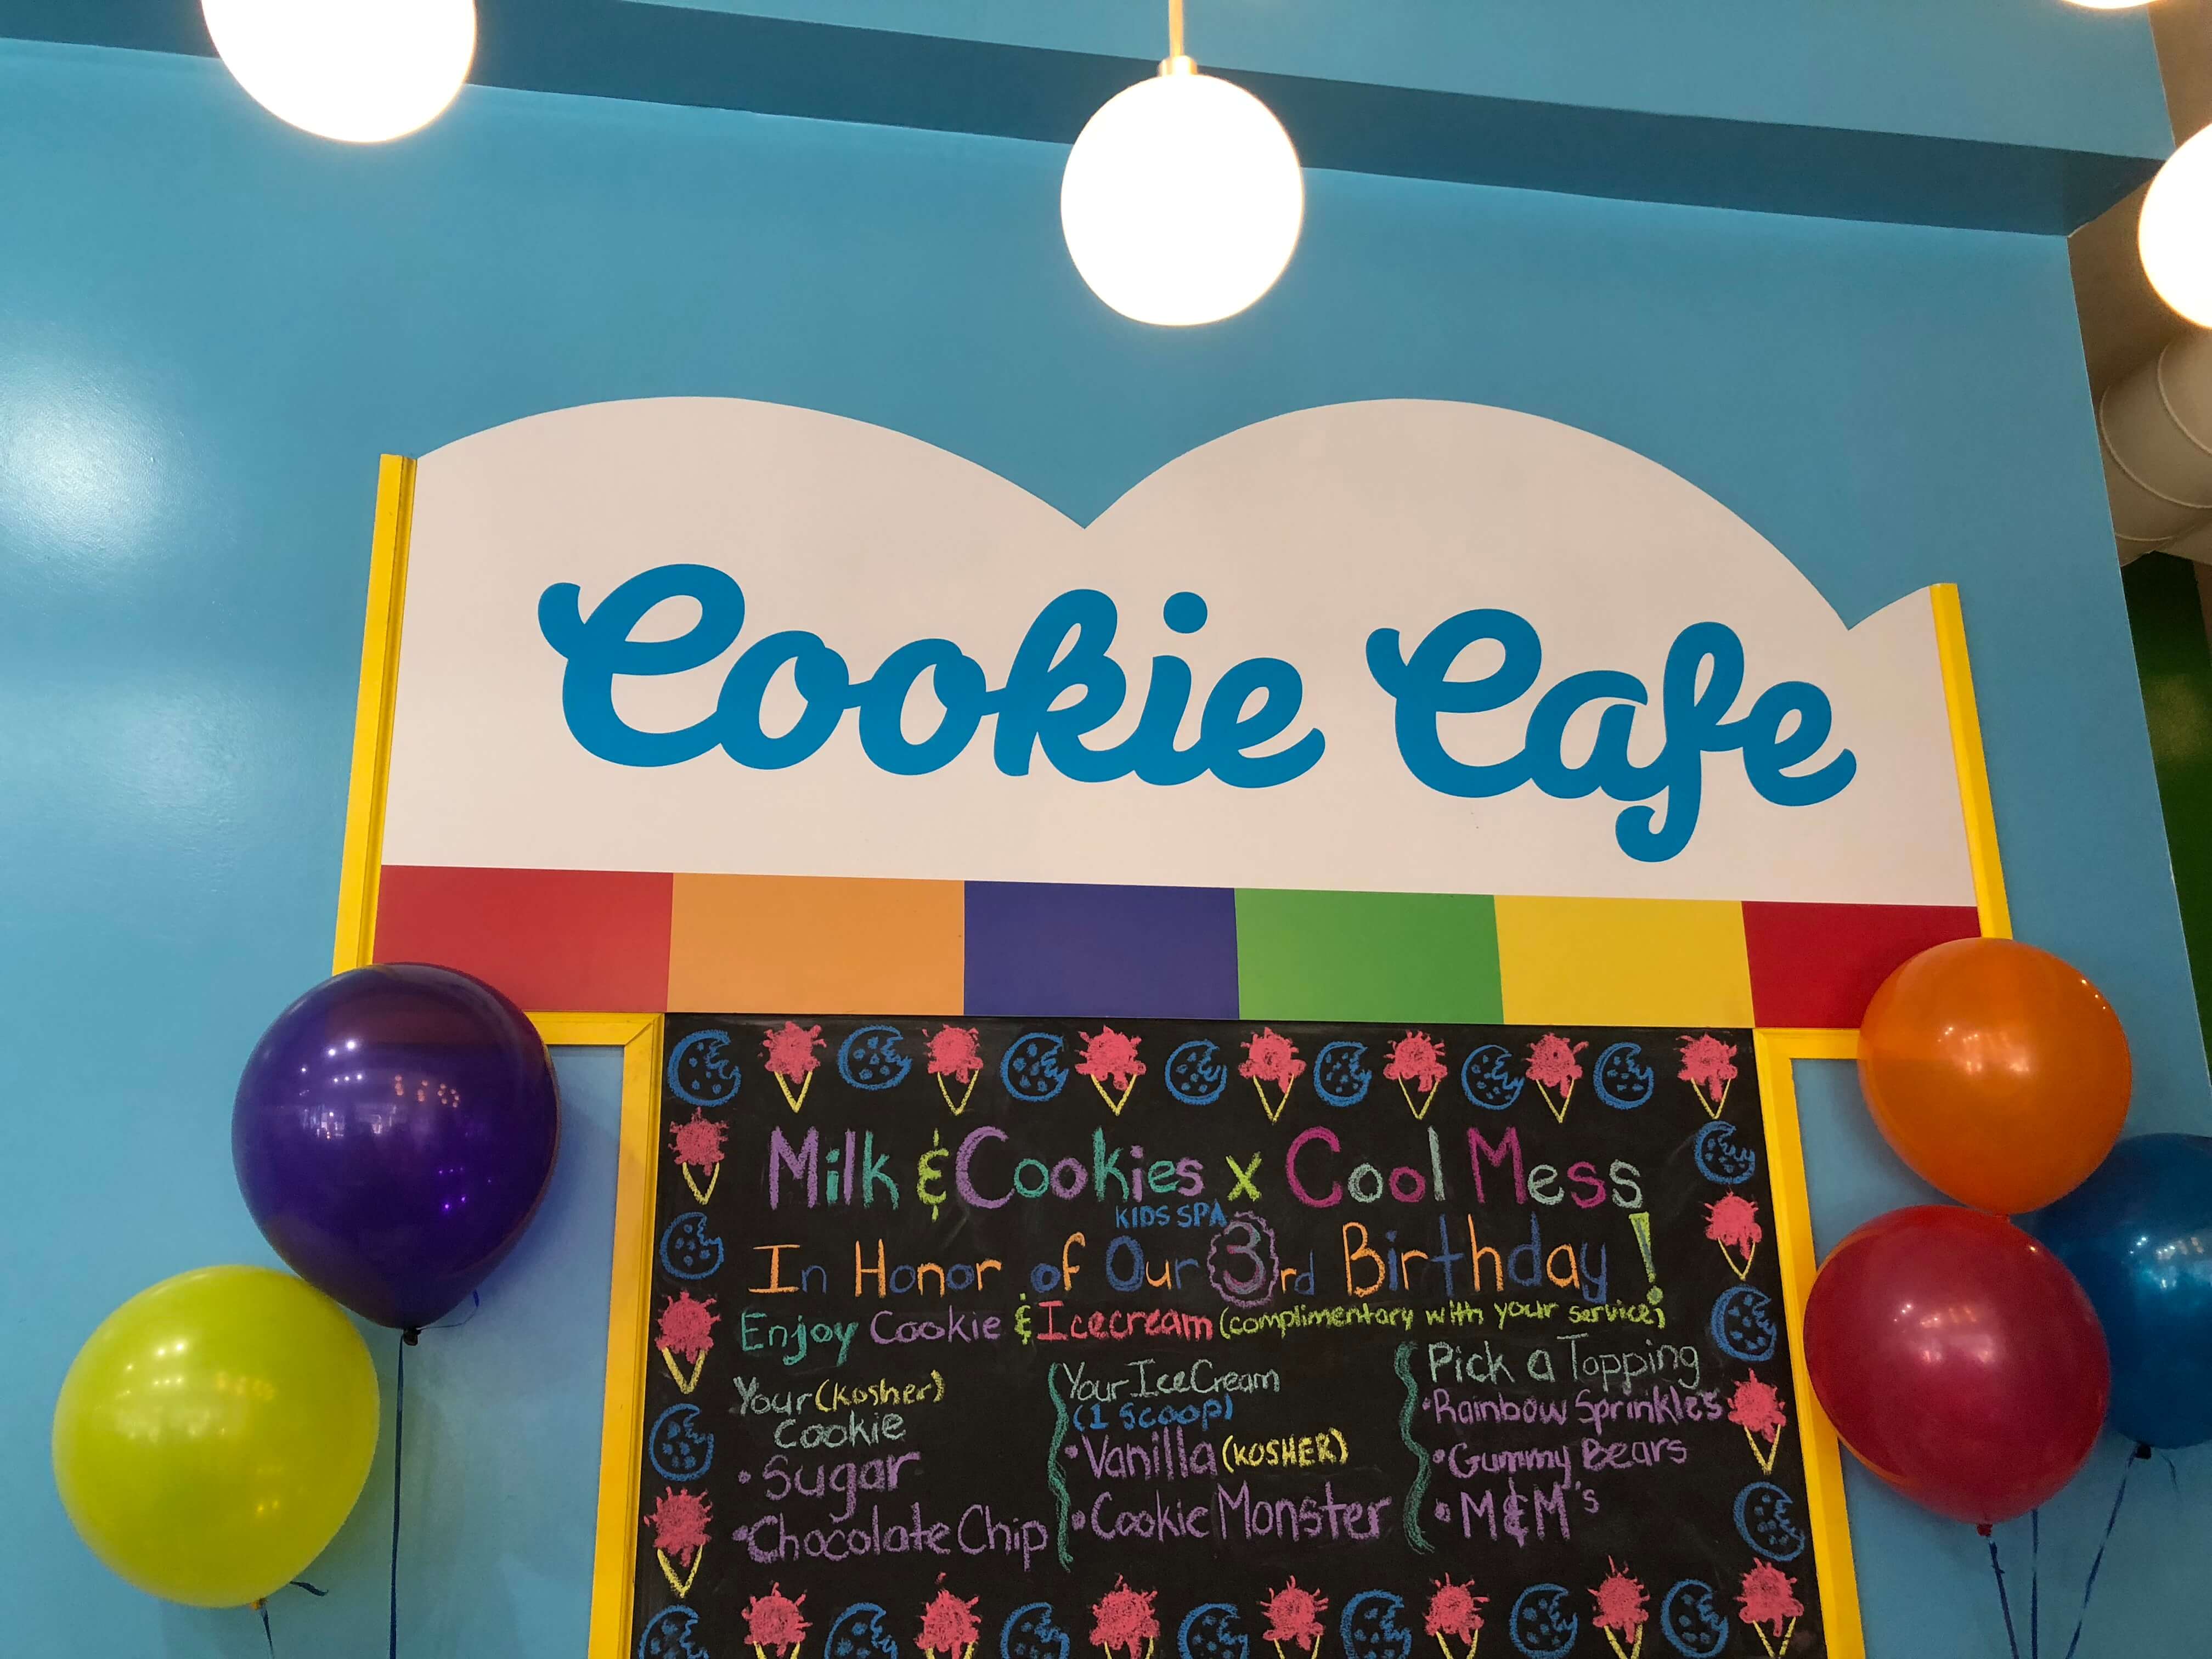 Cookie Cafe
Milk & Cookies x Cool Mess
KIDS SPA
In Honor of Our 3rd Birthday!
Enjoy Cookie & Icecream (complimentary with your service)
Your (Kosher)
Cookie
• Sugar
• Chocolate Chip
Your IceCream
(1 Scoop)
• Vanilla (KOSHER)
• Cookie Monster
Pick a Topping
• Rainbow Sprinkles
• Gummy Bears
• M&M's